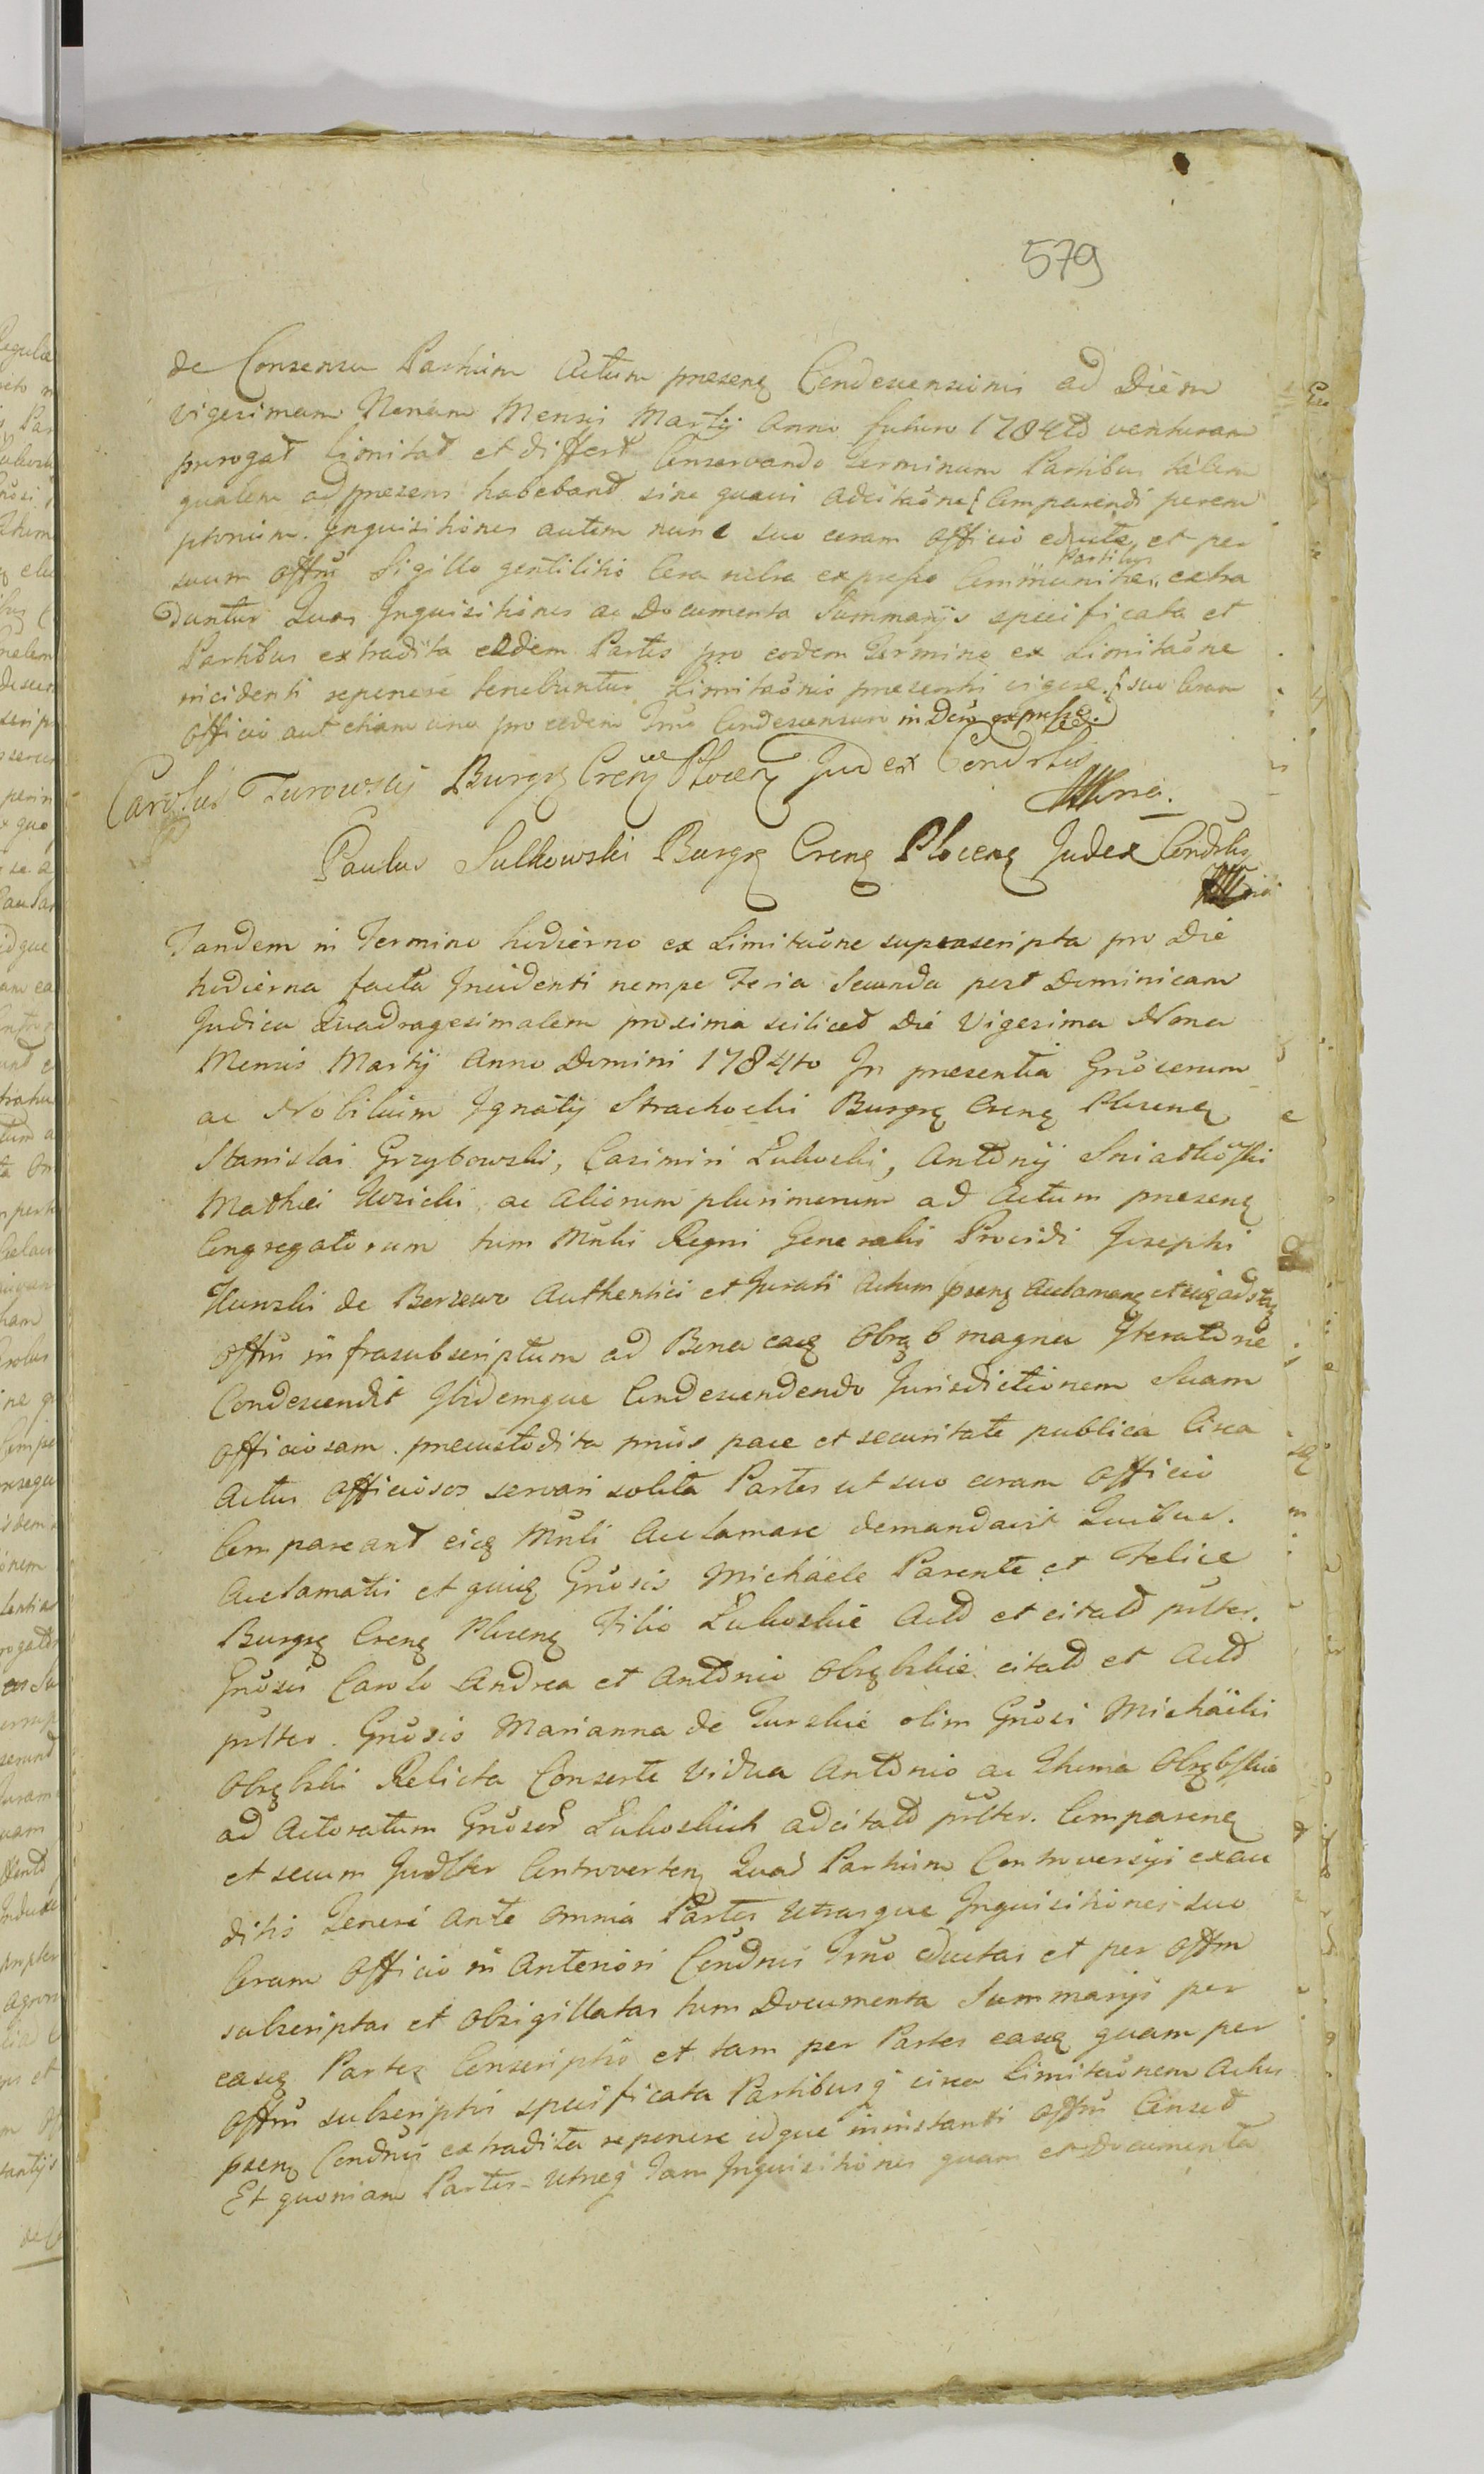 579
de Consensu Partium Actum presenę Condescensionis ad Diem
vigesimam Nonam Mensis Martij Anno futuro 1784to venturam
prorogat limitat et differt Conservando Terminum Partibus talem
qualem ad presens habebant sine quavis adcitaõne Comparendi perem
ptorium. Inquisitiones autem nunc suo coram officio eductæ, et per
suum Offm Sigillo gentilitio Cera rubra expresso Communitæ, Partibus extra
duntur Quas Inquisitiones ac Documenta Summarijs specificata et
Partibus extradita eædem Partes pro eodem Termino ex Limitaõne
incidenti reponere tenebuntur Limitaõnis presentis vigore. suo Coram
officio aut etiam uno pro eodem Tmo Condescensuro in Dcto expresse.
Carolus Turowski Burgrę Crenę Plocenę Judex Condrlis
Mmria.
Paulus Sulkowski Burgrę Crenę Plocenę Judex Condrlis
Tandem in Termino hodierno ex Limitaõne suprascripta pro Die
hodierna facta Incidenti nempe Feria Secunda post Dominicam
Judica Quadragesimalem proxima scilicet Die Vigesima Nona
Mensis Martij Anno Domini 1784to In presentia Gnosorum
ac Nobilium Ignatij Strachocki Burgrę Crenę Plocenę
Stanislai Grzybowski, Casimiri Łukoski, Antonij Sniatkoski
Mathei ac Aliorum plurimorum ad Actum presenę
Congregatorum tum Mnlis Regni Generalis Providi Josephi
de Authentici et Jurati Actum psenę Acclamanę
Offm infrascriptum ad Bona easę Obręb magna Iteratõne
Condescendit Ibidemque Condescendendo Jurisdictionem Suam
officiosam precustodita prius pace et securitate publica Circa
Actus Officiosos servari solita Partes ut suo coram officio
Compareant eicę Mnli Acclamare demandavit Quibus.
Acclamatis et quiłę Gnosis Michäele Parente et Felice
Burgrę Crenę Plocenę Filio Łukoskie Actõ et citatõ pślter.
Gnosis Carolo Andrea et Antonio Obrębskie citatõ et Actõ
pślter. Gnosis Marianna de Turskie olim Gnosi Michäelis
Obrębski Relicta Consorte Vidua Antonio ac Thoma Obrębskie
ad Actoratum Gnosor Łukoskich adcitatõ pślter. Comparenę
et secum Judlter Controvertenę Quar Partium Controversijs exau
ditis Tenere Ante omnia Partes Utrasque Inquisitiones suo
Coram Officio in Anteriori Condnis Tmo eductas et per Offm
subscriptas et Obsigillatas tum Documenta Summarijs per
easę Partes Conscriptis et tam per Partes easę quam per
Offm subscriptis specificata Partibusq circa Limitaõnem Actus
psenę Condnis extradita reponere idque in instanti Offm Censet
Et quoniam Partes Utræq Tam Inquisitiones quam et Documenta